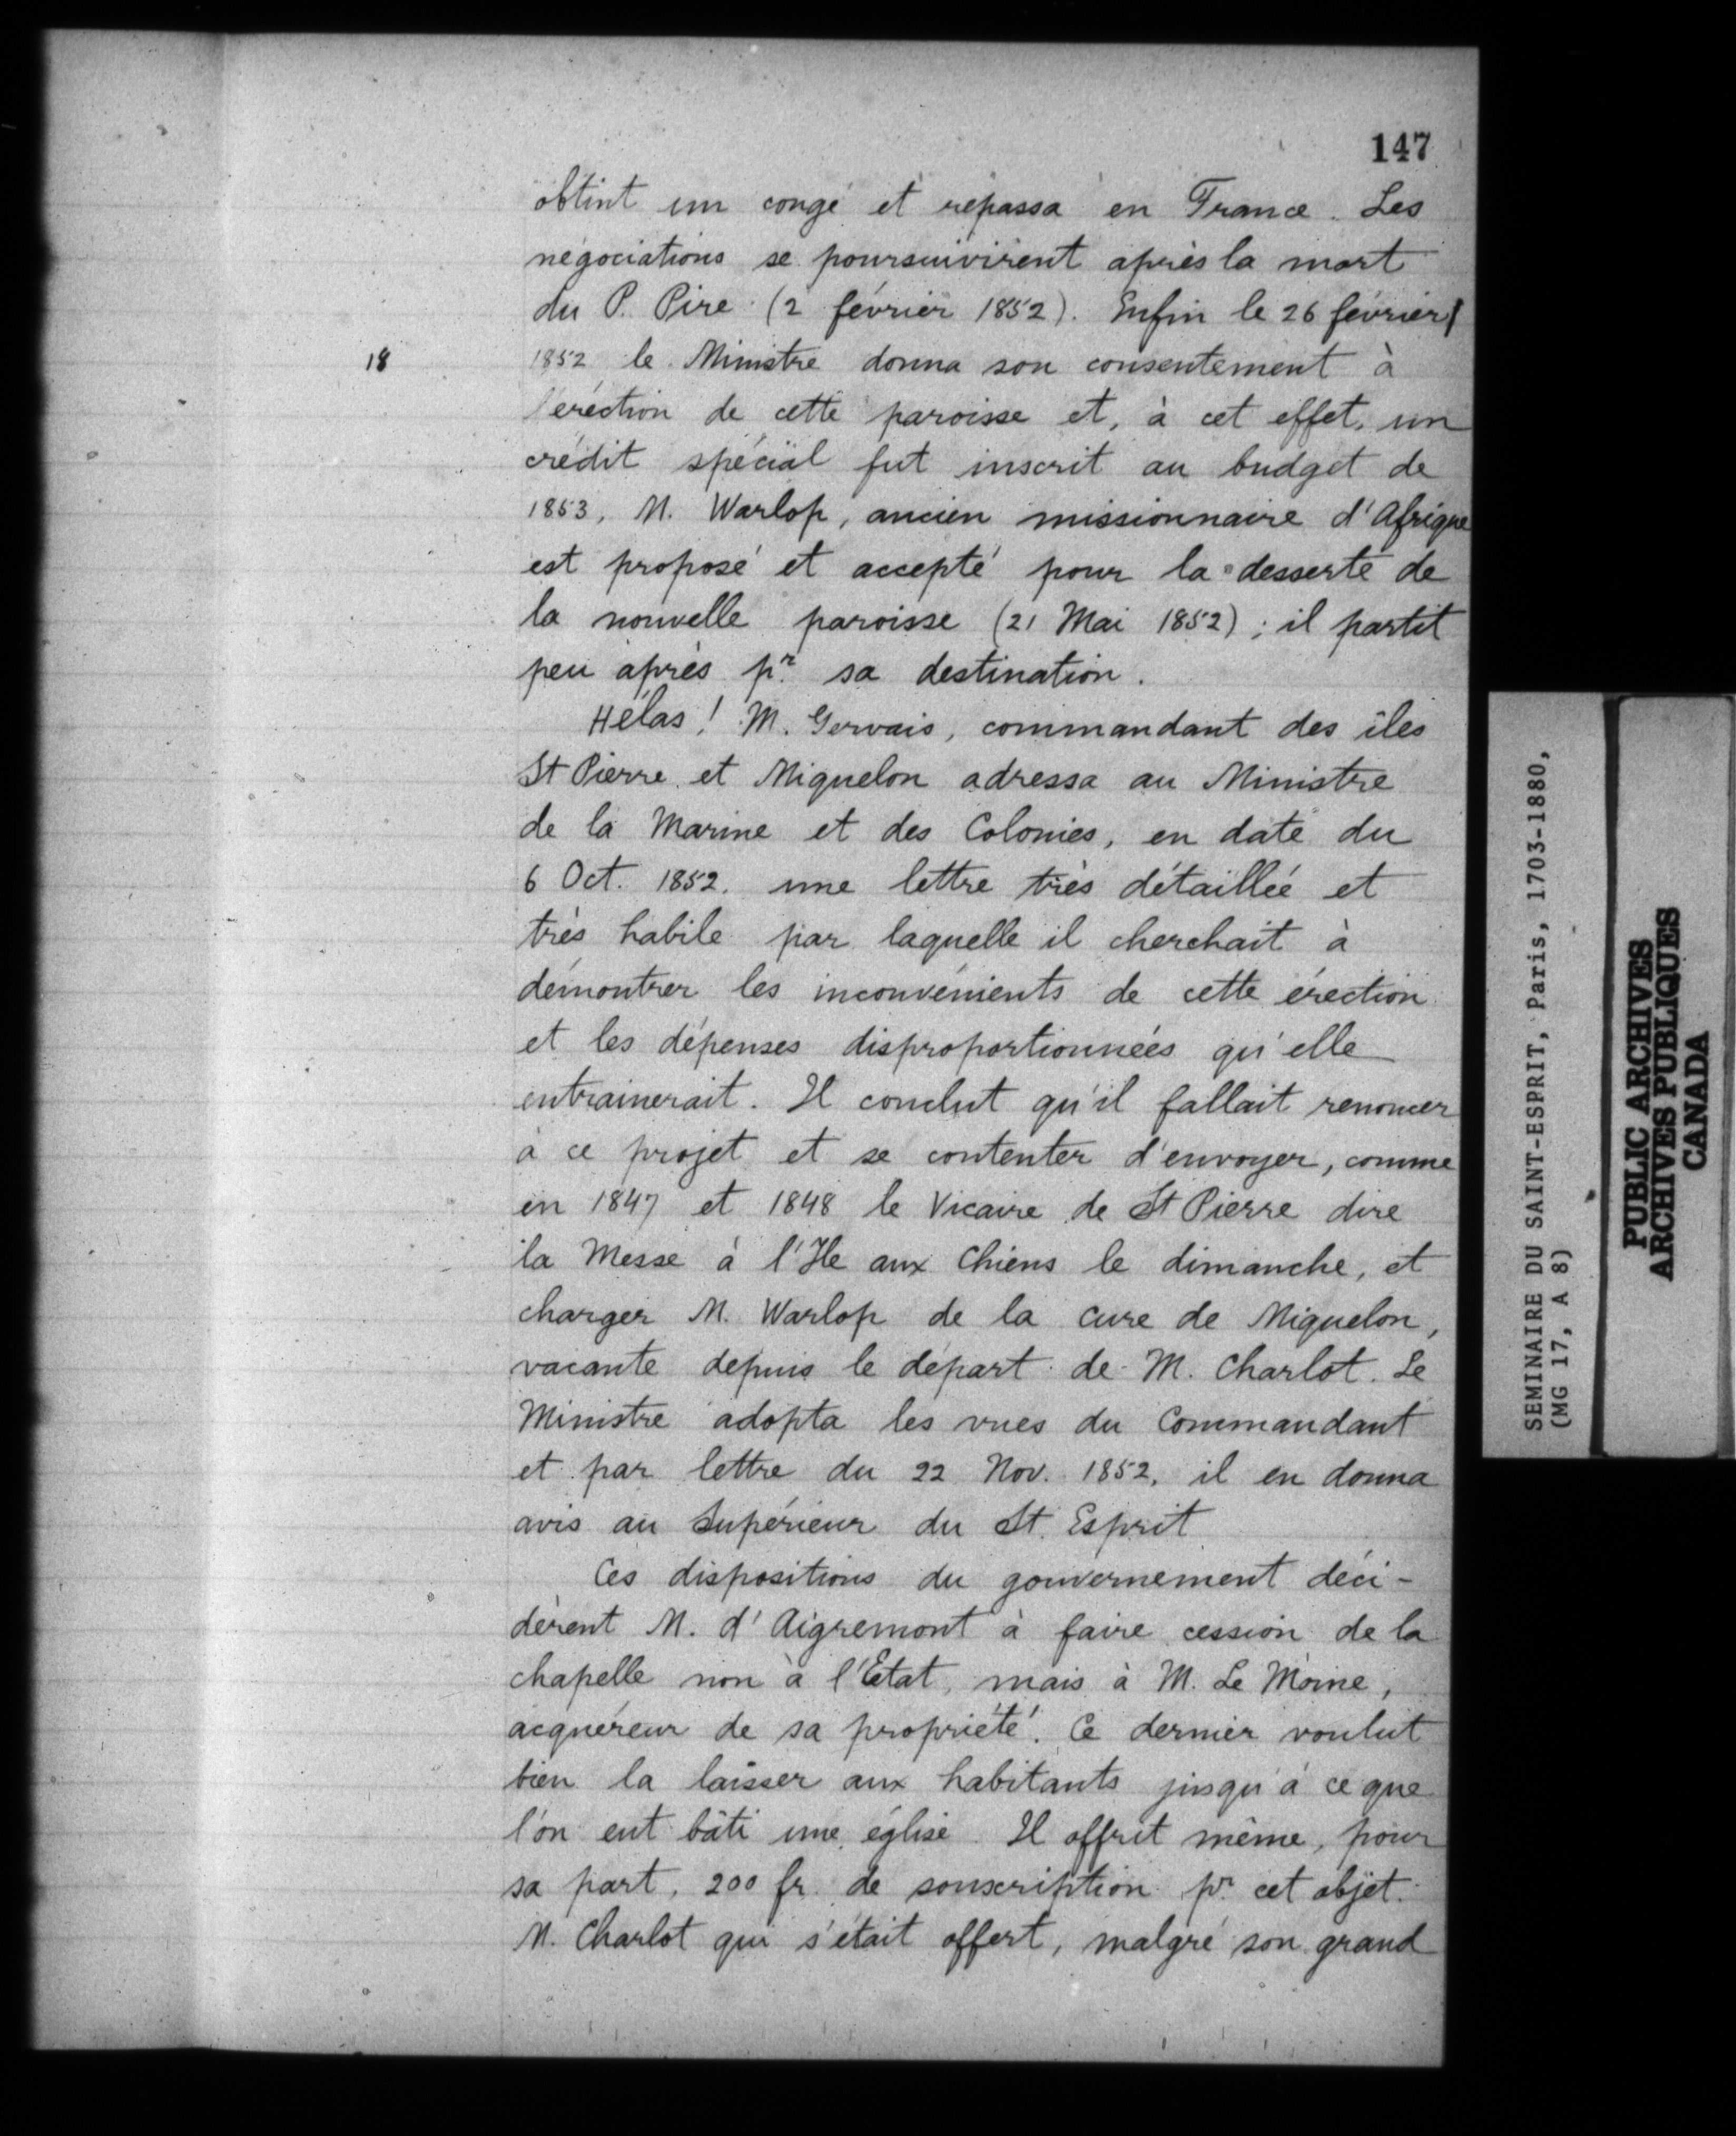 147
obtint un congé et repassa en France. Les
négociations se poursuivirent après la mort
du P. Pire (2 février 1852). Enfin le 26 février
18
1852 le Ministre donna son consentement à
l'érection de cette paroisse et, à cet effet, un
crédit spécial fut inscrit au budget de
1853, M. Warlop, ancien missionnaire d'Afrique
est proposé et accepté pour la desserte de
la nouvelle paroisse (21 Mai 1852) ; il partit
peu après pr sa destination.
Hélas ! M. Gervais, commandant des îles
St Pierre et Miquelon adressa au Ministre
de la Marine et des Colonies, en date du
6 Oct. 1852, une lettre très détaillée et
très habile par laquelle il cherchait à
démontrer les inconvénients de cette érection
et les dépenses disproportionnées qu'elle
entrainerait. Il conclut qu'il fallait renoncer
à ce projet et se contenter d'envoyer, comme
en 1847 et 1848 le Vicaire de St Pierre dire
la Messe à l'Ile aux Chiens le dimanche, et
charger M. Warlop de la cure de Miquelon,
vacante depuis le départ de M. Charlot. Le
Ministre adopta les vues du Commandant
et par lettre du 22 Nov. 1852, il en donna
avis au Supérieur du St. Esprit
Ces dispositions du gouvernement déci-
dèrent M. d'Aigremont à faire cession de la
chapelle non à l'Etat, mais à M. Le Moine,
acquéreur de sa propriété. Ce dernier voulut
bien la laisser aux habitants jusqu'à ce que
l'on eut bâti une église. Il offrit même, pour
sa part, 200 fr. de souscription pr cet objet.
M. Charlot qui s'était offert, malgré son grand
SEMINAIRE DU SAINT-ESPRIT, Paris, 1703-1880,
(MG 17, A 8)
PUBLIC ARCHIVES
ARCHIVES PUBLIQUES
CANADA